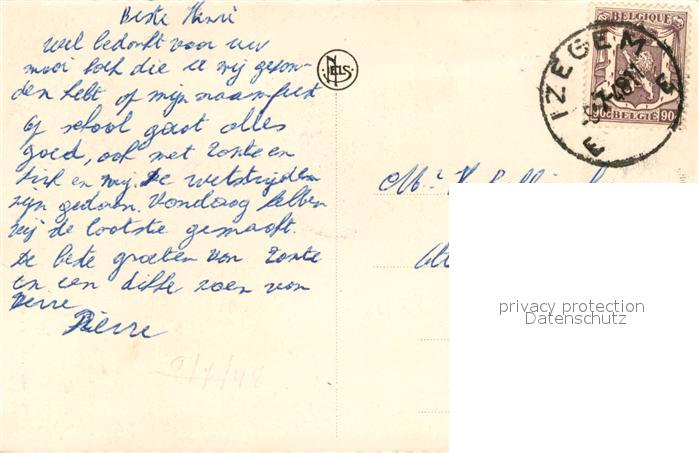 Beste Henri
Wel bedankt voor uw
mooi boek die u mij gezon-
den hebt op mijn naamfeest
Op school gaat alles
goed, ook met Tante en
en wij. De wetstrijden
zijn gedaan. Vandaag hebben
wij de laatste gemaakt.
De beste groeten van Tante
en een dikke zoen van
Pierre
Pierre
2/7/48
NELS
BELGIQUE
90c BELGIE 90
IZEGEM
privacy protection
Datenschutz